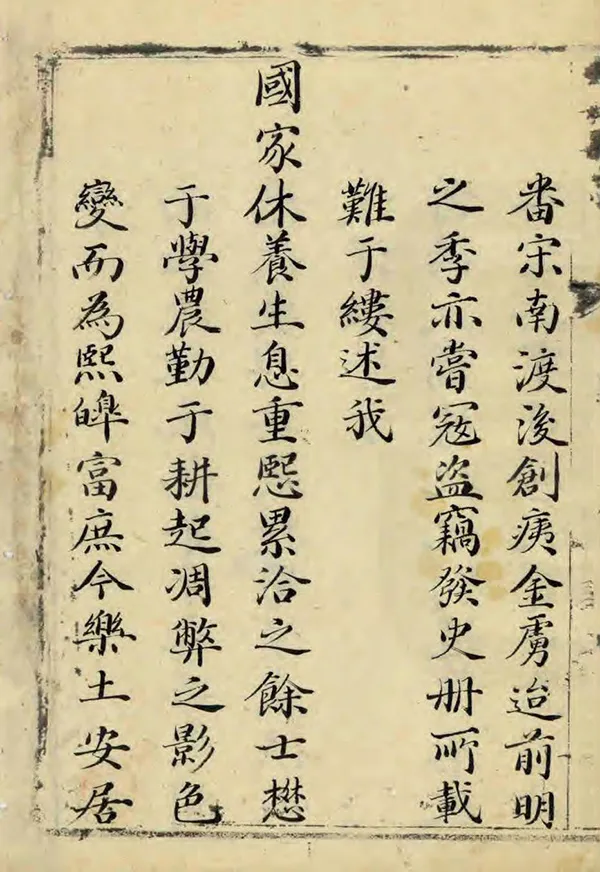 番宋南渡後創痍金虜迨前明
之季亦嘗冦盗竊發史册所載
難于縷述我
國家休養生息重熙累洽之餘士懋
于學農勤于耕起凋弊之影色
變而為熙皥富庶今樂土安居